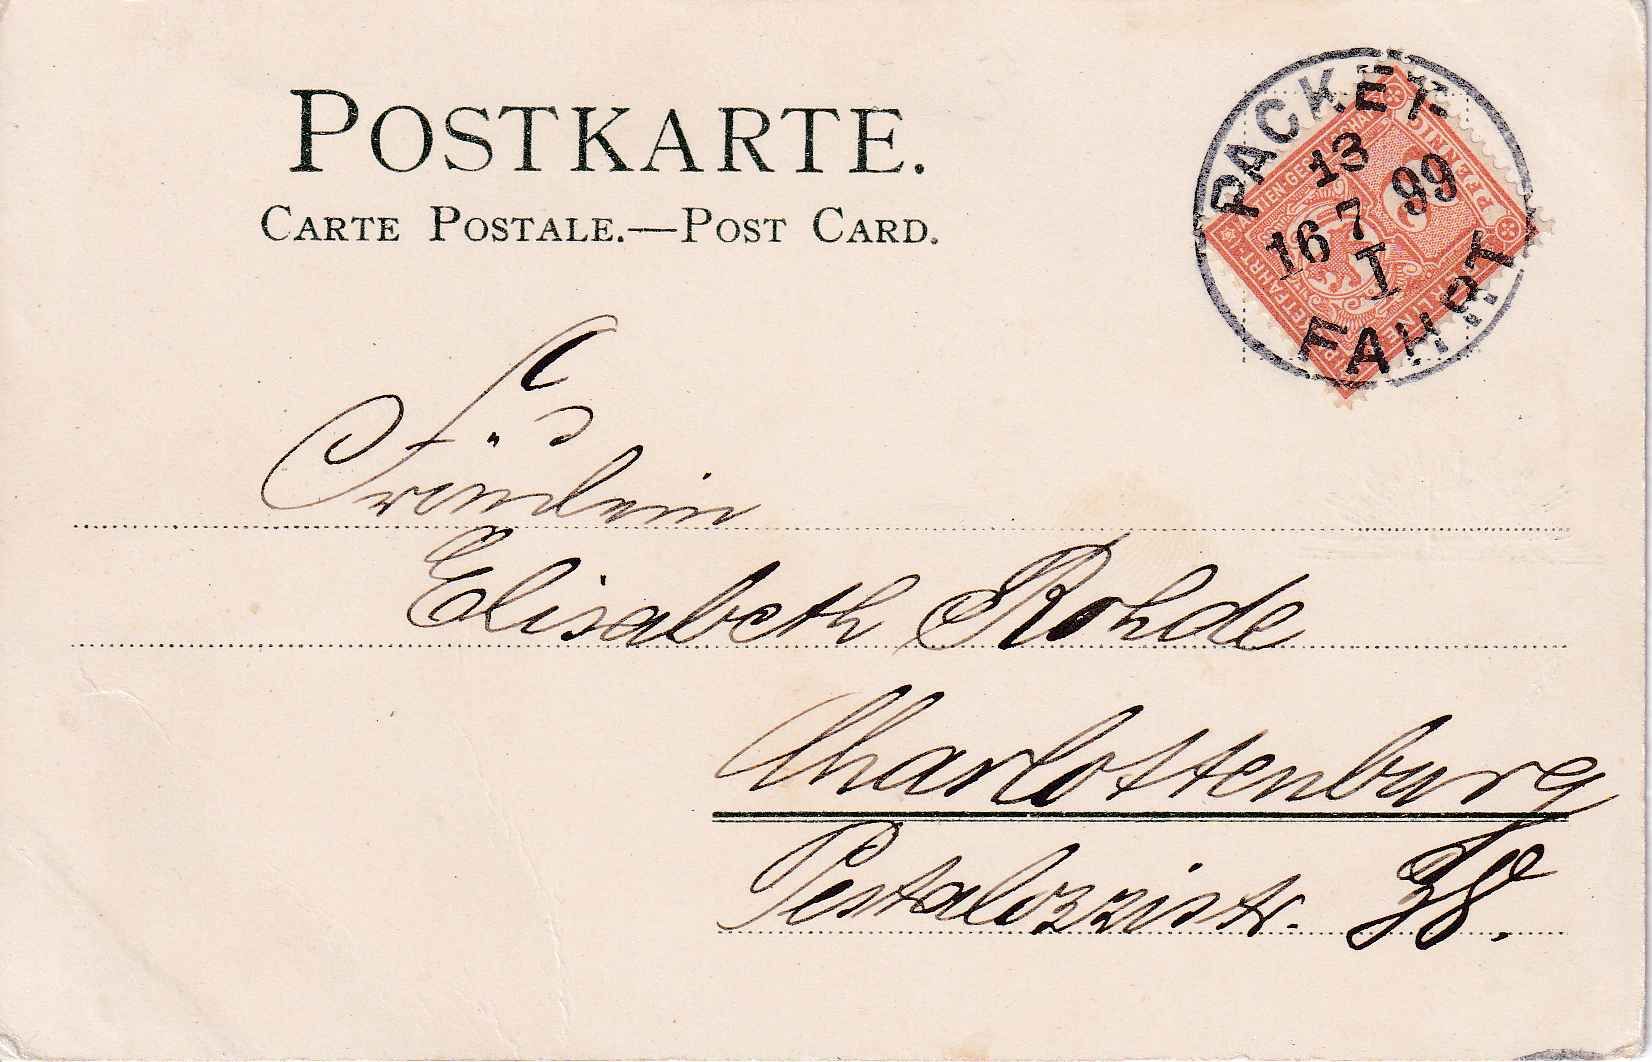 POSTKARTE.
CARTE POSTALE.—POST CARD.
PACKET-
13
16 7 99
I
FAHRT
PFENNIG
Fräulein
Elisabeth Rohde
Charlottenburg
Pestalozzistr. 38.